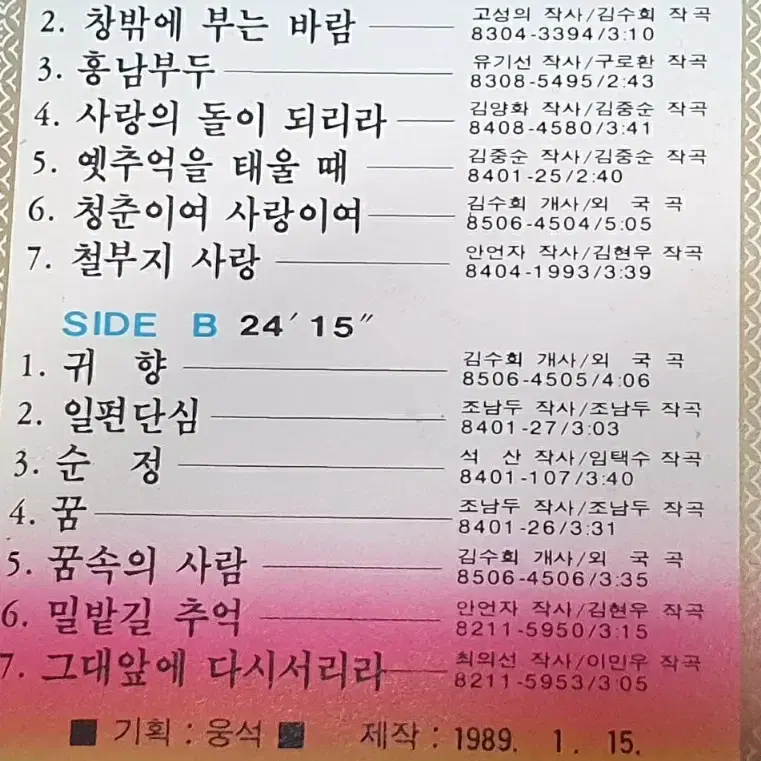 2. 창밖에 부는 바람 고성의 작사/김수희 작곡
8304-3394/3:10
3. 흥남부두 유기선 작사/구로환 작곡
8308-5495/2:43
4. 사랑의 돌이 되리라 김양화 작사/김중순 작곡
8408-4580/3:41
5. 옛추억을 태울 때 김중순 작사/김중순 작곡
8401-25/2:40
6. 청춘이여 사랑이여 김수희 개사/외 국 곡
8506-4504/5:05
7. 철부지 사랑 안언자 작사/김현우 작곡
8404-1993/3:39
SIDE B 24′ 15″
1. 귀 향 김수희 개사/외 국 곡
8506-4505/4:06
2. 일편단심 조남두 작사/조남두 작곡
8401-27/3:03
3. 순 정 석 산 작사/임택수 작곡
8401-107/3:40
4. 꿈 조남두 작사/조남두 작곡
8401-26/3:31
5. 꿈속의 사람 김수희 개사/외 국 곡
8506-4506/3:35
6. 밀밭길 추억 안언자 작사/김현우 작곡
8211-5950/3:15
7. 그대앞에 다시서리라 최의선 작사/이민우 작곡
8211-5953/3:05
■ 기획 : 웅석 ■ 제작 : 1989. 1. 15.